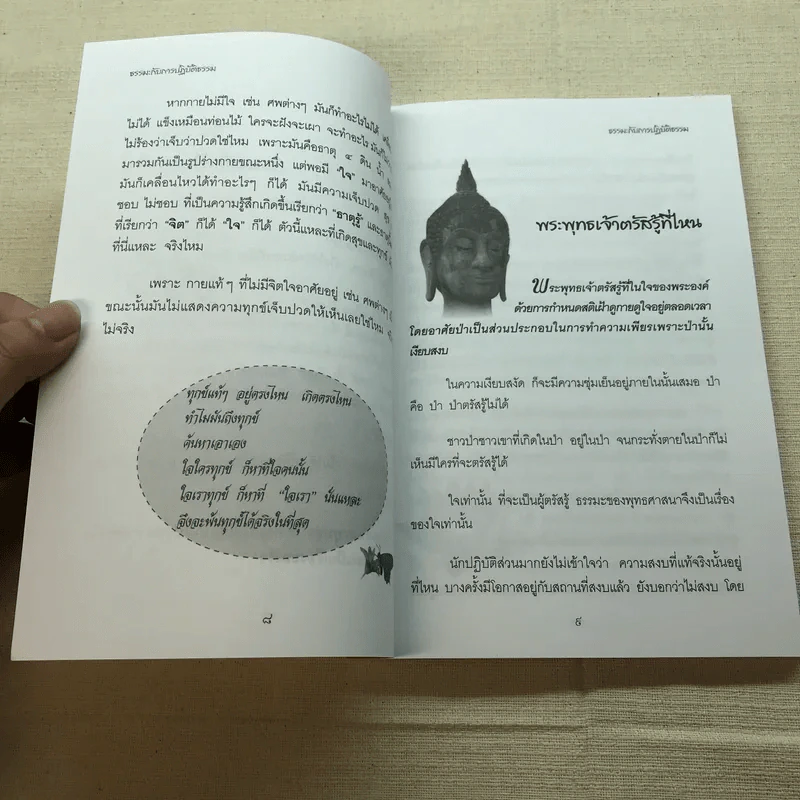 ธรรมะกับการปฏิบัติธรรม
หากกายไม่มีใจ เช่น ศพต่างๆ มันก็ทำอะไรไม่ได้
ไม่ได้ แข็งเหมือนท่อนไม้ ใครจะฝังจะเผา จะทำอะไร มันก็
ไม่ร้องว่าเจ็บว่าปวดใช่ไหม เพราะมันคือธาตุ ๔ ดิน น้ำ
มารวมกันเป็นรูปร่างกายขณะหนึ่ง แต่พอมี "ใจ" มาอาศัย
มันก็เคลื่อนไหวได้ทำอะไรๆ ก็ได้ มันมีความเจ็บปวด
ชอบ ไม่ชอบ ที่เป็นความรู้สึกเกิดขึ้นเรียกว่า "ธาตุรู้"
ที่เรียกว่า "จิต" ก็ได้ "ใจ" ก็ได้ ตัวนี้แหละที่เกิดสุขและทุกข์
ที่นี่แหละ จริงไหม
เพราะ กายแท้ๆ ที่ไม่มีจิตใจอาศัยอยู่ เช่น ศพต่างๆ
ขณะนั้นมันไม่แสดงความทุกข์เจ็บปวดให้เห็นเลยใช่ไหม
ไม่จริง
ทุกข์แท้ๆ อยู่ตรงไหน เกิดตรงไหน
ทำไมมันถึงทุกข์
ค้นหาเอาเอง
ใจใครทุกข์ ก็หาที่ใจคนนั้น
ใจเราทุกข์ ก็หาที่ "ใจเรา" นั่นแหละ
จึงจะพ้นทุกข์ได้จริงในที่สุด
๘
ธรรมะกับการปฏิบัติธรรม
พระพุทธเจ้าตรัสรู้ที่ไหน
พระพุทธเจ้าตรัสรู้ที่ในใจของพระองค์
ด้วยการกำหนดสติเฝ้าดูกายดูใจอยู่ตลอดเวลา
โดยอาศัยป่าเป็นส่วนประกอบในการทำความเพียรเพราะป่านั้น
เงียบสงบ
ในความเงียบสงัด ก็จะมีความชุ่มเย็นอยู่ภายในนั้นเสมอ ป่า
คือ ป่า ป่าตรัสรู้ไม่ได้
ชาวป่าชาวเขาที่เกิดในป่า อยู่ในป่า จนกระทั่งตายในป่าก็ไม่
เห็นมีใครที่จะตรัสรู้ได้
ใจเท่านั้น ที่จะเป็นผู้ตรัสรู้ ธรรมะของพุทธศาสนาจึงเป็นเรื่อง
ของใจเท่านั้น
นักปฏิบัติส่วนมากยังไม่เข้าใจว่า ความสงบที่แท้จริงนั้นอยู่
ที่ไหน บางครั้งมีโอกาสอยู่กับสถานที่สงบแล้ว ยังบอกว่าไม่สงบ โดย
๙